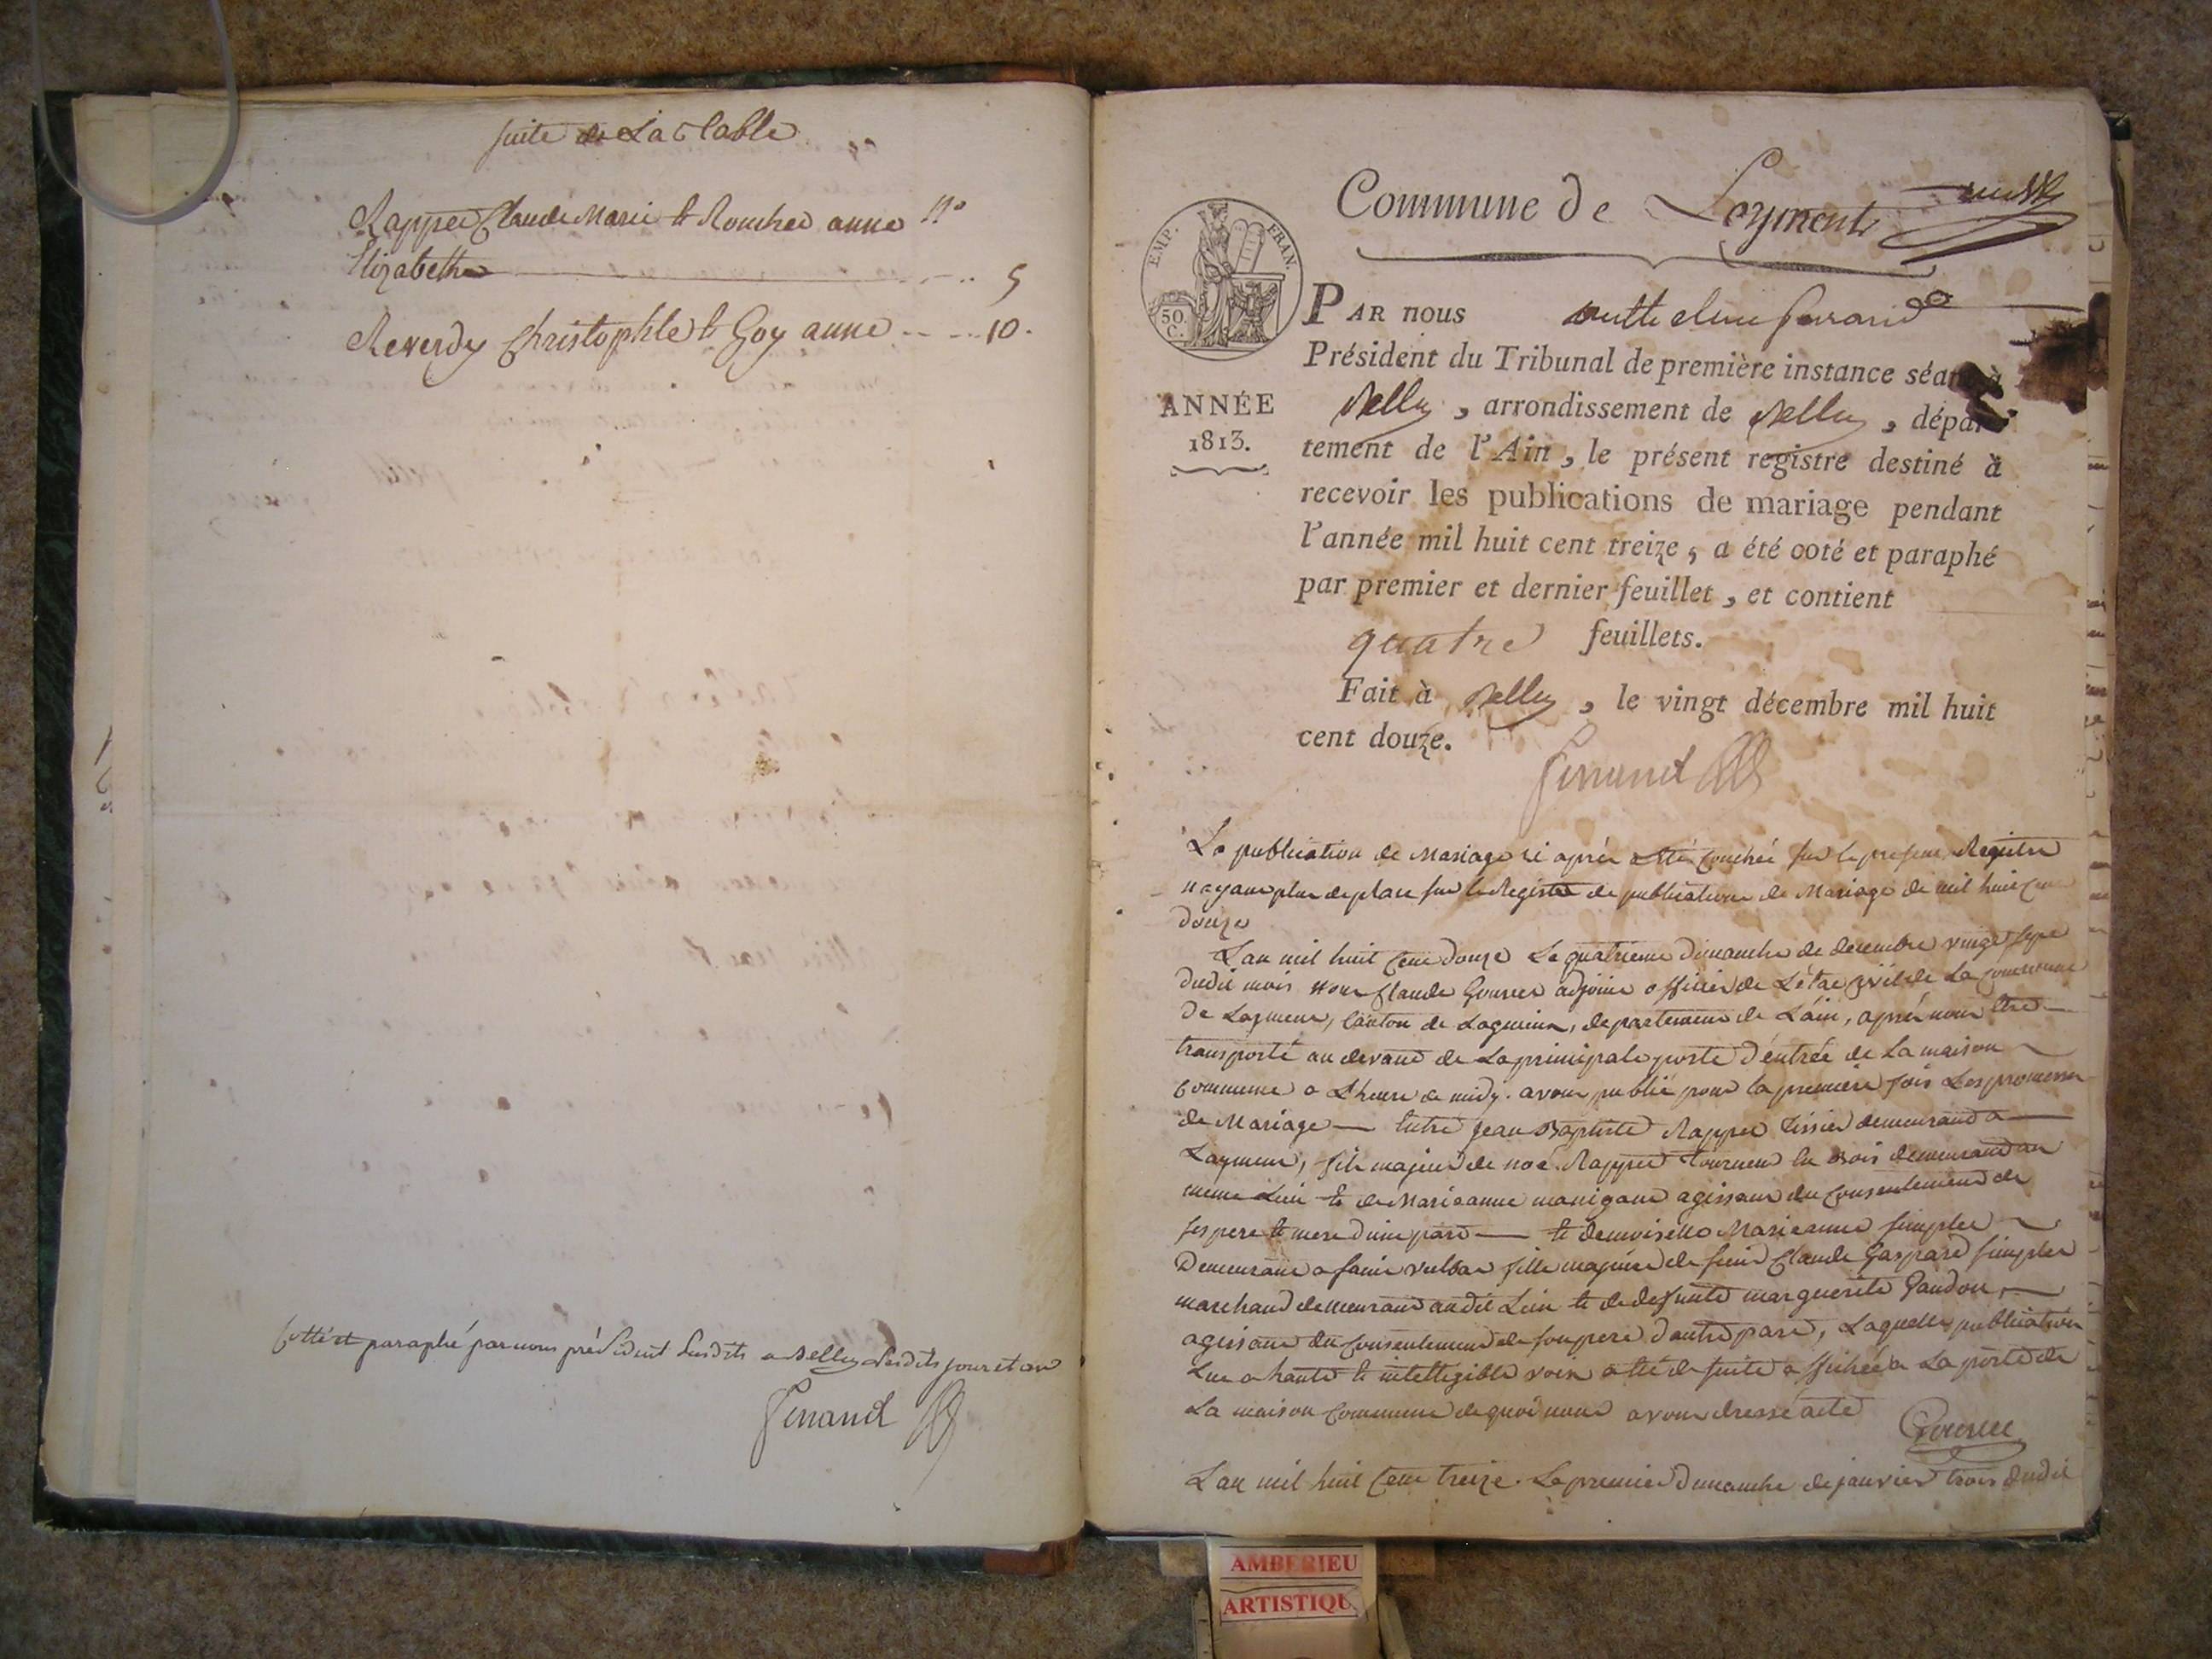 suite de La table
Rapper Claude Marie & Roucher anne N°
Elizabeth 5
Reverdy Christophle & Goy anne 10.
Cotté et paraphé par nous président susdits a Belley Lesdits jour et an
Ferrand
Commune de Loyment
EMP. FRAN.
50.
C.
PAR nous
Président du Tribunal de première instance séant à
ANNÉE
1813.
Belley, arrondissement de Belley, dépar-
tement de l'Ain, le présent registre destiné à
recevoir les publications de mariage pendant
l'année mil huit cent treize, a été coté et paraphé
par premier et dernier feuillet, et contient
quatre feuillets.
Fait à Belley, le vingt décembre mil huit
cent douze.
Ferrand
La publication de Mariage ci après a été couchée sur le present Registre
n'ayant plus de place sur le Registre de publication de Mariage de mil huit cent
douze
L'an mil huit cent douze Le quatrieme dimanche de decembre vingt sept
dudit mois nous Claude Gourrer adjoint officier de L'état civil de La commune
de Loyment, Canton de Lagnieux, departement de L'ain, après nous etre
transporté au devant de La principale porte d'entrée de La maison
commune a L'heure de midy. avons publié pour la premiere fois Les promesses
de Mariage — Entre Jean Baptiste Rapper Tissier demeurant a
Loyment, fils majeur de noé Rapper Tourneur en Bois demeurant au
meme Lieu & de Marieanne manigant agissant du consentement de
ses pere & mere d'une part — & demoiselle Marieanne simplex
Demeurant a saint vulbas fille majeure de sieur Claude Gaspard simplex
marchand demeurant audit Lieu & de defunte marguerite Gandon,
agissant du consentement de son pere d'autre part, Laquelle publication
Lue a haute & intelligible voix a été de suite affichée a La porte de
La maison commune de quoi nous avons dressé acte
L'an mil huit cent treize. Le premier Dimanche de janvier trois dudit
AMBERIEU
ARTISTIQU